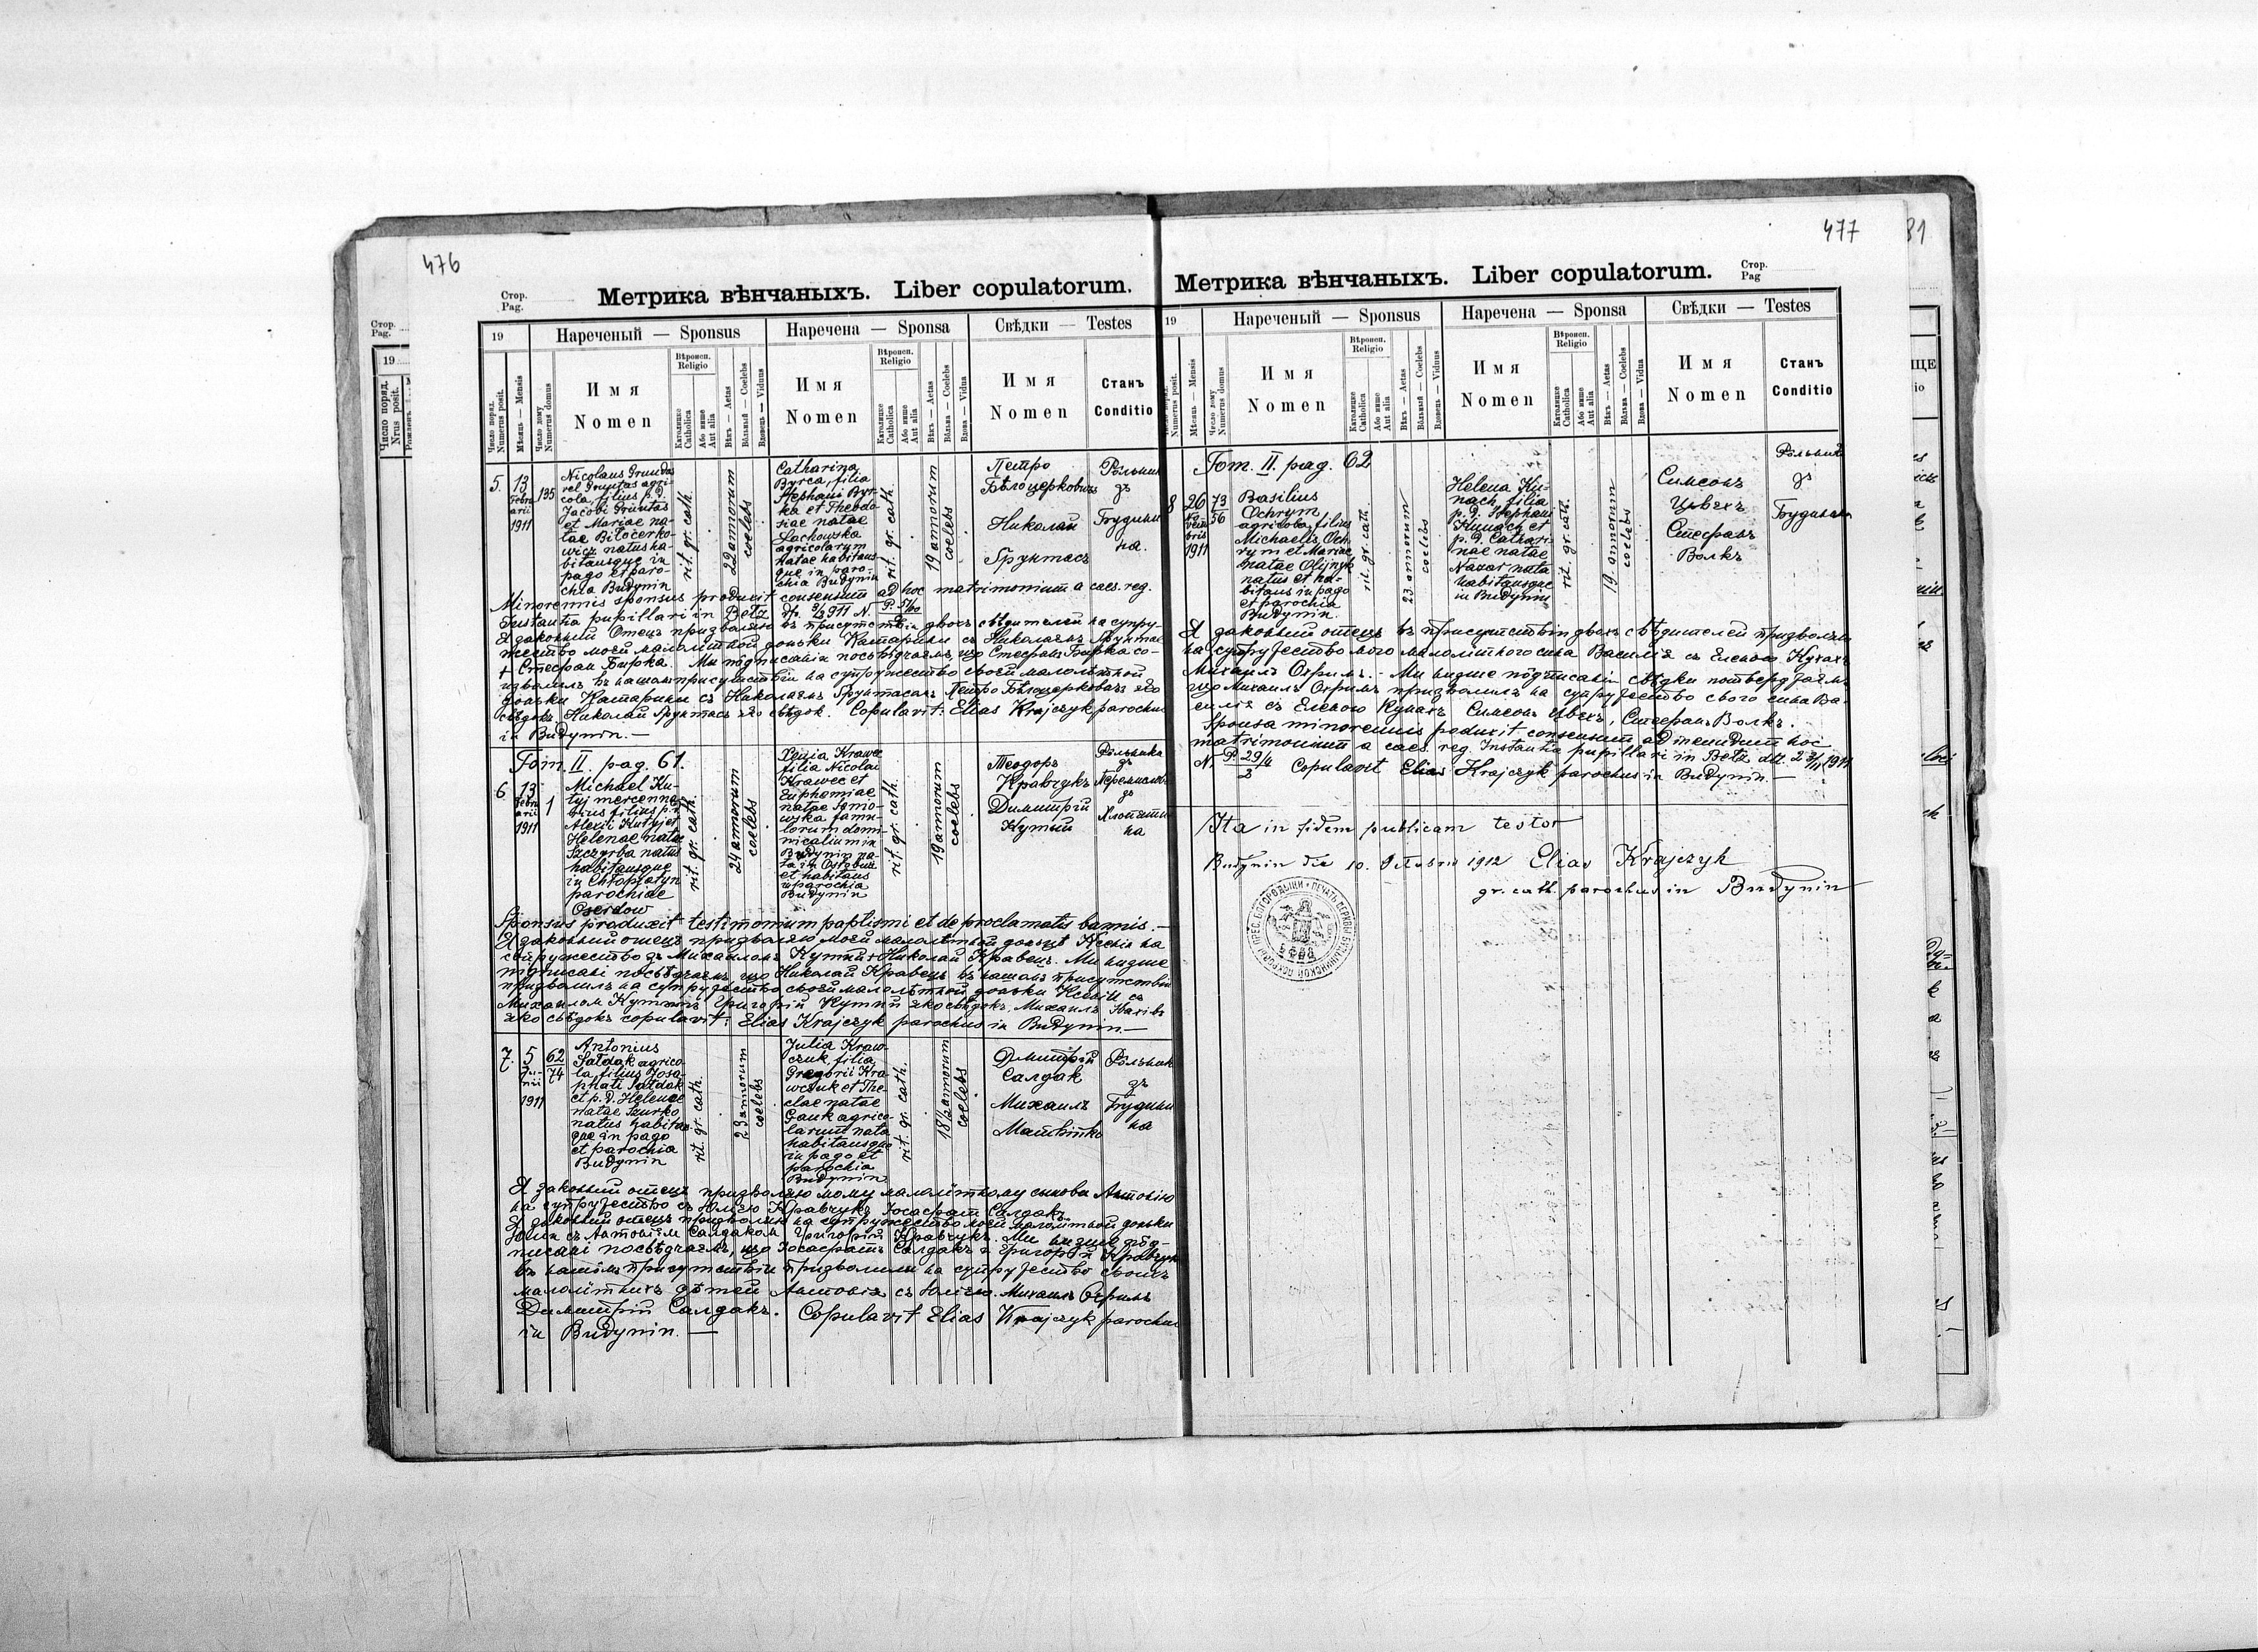 476
Стор.
Pag.
Метрика вѣнчаныхъ. Liber copulatorum.
19
Нареченый — Sponsus
Наречена — Sponsa
Свѣдки — Testes
Число поряд.
Numerus posit.
Мѣсяць — Mensis
Число дому
Numerus domus
Имя
Nomen
Вѣроисп.
Religio
Католицке
Catholica
Або инше
Aut alia
Вѣкъ — Aetas
Вольный — Coelebs
Вдовець — Viduus
Имя
Nomen
Вѣроисп.
Religio
Католицке
Catholica
Або инше
Aut alia
Вѣкъ — Aetas
Вольна — Coelebs
Вдова — Vidua
Имя
Nomen
Станъ
Conditio
5.
13
Febru
arii
1911
135
Nicolaus Gruntas
vel Gruntas agri-
cola, filius p. d.
Jacobi Gruntas
et Mariae na-
tae Bitocerko-
wicz natus ha-
bitansque in
pago et paro-
chia Budynin
rit. gr. cath.
22 annorum
coelebs
Catharina
Byrca, filia
Stephani Byr-
ka et Theodo-
siae natae
Lachowska
agricolarum
nata habitans-
que in paro-
chia Budynin
rit. gr. cath.
19 annorum
coelebs
Петро
Бѣлоцерковичъ
Николай
Ґрунтасъ
Рольники
зъ
Будини
на.
Minorennis sponsus produxit consensum ad hoc matrimonium a caes. reg.
Instantia pupillari in Betz
Я законный Отець призваляю въ присутствіи двохъ свѣдителей на супру-
жество моєй малолѣтной доньки Катарини съ Николаємъ Ґрунтас
+ Стефан Бирка. Ми подписаніи посвѣдчаємъ, що Стефанъ Бирка со-
изволилъ въ нашомъ присутствіи на супружество своєй малолѣтной
доньки Катарини съ Николаємъ Ґрунтасомъ Петро Бѣлоцерковичъ яко
свѣдокъ, Николай Ґрунтасъ яко свѣдок. Copulavit: Elias Krajczyk parochus
in Budynin. —
Tom. II. pag. 61.
6
13
Febru
arii
1911
1
Michael Ku-
tyj mercenna-
rius filius p. d.
Alexii Kutyj et
Helenae natae
Szczyrba natus
habitansque
in Chłopiatyn
parochiae
Oserdow
rit. gr. cath.
24 annorum
coelebs
Xenia Krawec
filia Nicolai
Krawec et
Euphemiae
natae
famu-
lorum domi-
nicalium in
Budynin na-
ta in
et habitans
in parochia
Budynin
rit. gr. cath.
19 annorum
coelebs
Теодоръ
Кравчукъ
Димитрій
Кутый
Рольники
зъ
зъ
Хлопяти
на
Sponsus produxit testimonium baptismi et de proclamatis bannis. —
Я законный отець призваляю моєй малолѣтной доньцѣ Ксеніи на
супружество зъ Михаиломъ Кутый + Николай Кравець. Ми низше
подписані посвѣдчаємъ, що Николай Кравець въ нашомъ присутствіи
призволилъ на супружество своєй малолѣтной доньки Ксеніи съ
Михаилом Кутымъ Григорій Кутый яко свѣдокъ, Михаилъ
яко свѣдокъ copulavit: Elias Krajczyk parochus in Budynin —
7.
5
Ju-
nii
1911
62
74
Antonius
Sałdak agrico-
la, filius Josa-
phati Sałdak
et p. d. Helenae
natae Szurko
natus habitans-
que in pago
et parochia
Budynin
rit. gr. cath.
23 annorum
coelebs
Julia Kraw-
czuk, filia
Gregorii Kra-
wczuk et The-
clae natae
Gauk agrico-
larum nata
habitansque
in pago et
parochia
Budynin
rit. gr. cath.
18 1/2 annorum
coelebs
Дмитрій
Салдак
Михаилъ
Рольники
зъ
Будини
на
Я законный отець призваляю мому малолѣтному сынови Антонію
на супружество съ Юлією Кравчукъ Іосафат Салдакъ
Я законный отець призваляю на супружество моєй малолѣтной доньки
Юліи съ Антоніем Салдаком Григорій Кравчукъ. Ми низше под-
писані посвѣдчаємъ, що Іосафатъ Салдакъ и Григорій Кравчукъ
въ нашомъ присутствіи призволили на супружество своихъ
малолѣтныхъ дѣтей Антонія съ Юлією. Михаилъ Охримъ
Димитрій Салдакъ. Copulavit Elias Krajczyk parochus
in Budynin. —
477
Метрика вѣнчаныхъ. Liber copulatorum.
Стор.
Pag
19
Нареченый — Sponsus
Наречена — Sponsa
Свѣдки — Testes
Numerus posit.
Мѣсяць — Mensis
Число дому
Numerus domus
Имя
Nomen
Вѣроисп.
Religio
Католицке
Catholica
Або инше
Aut alia
Вѣкъ — Aetas
Вольный — Coelebs
Вдовець — Viduus
Имя
Nomen
Вѣроисп.
Religio
Католицке
Catholica
Або инше
Aut alia
Вѣкъ — Aetas
Вольна — Coelebs
Вдова — Vidua
Имя
Nomen
Станъ
Conditio
Tom. II. pag. 62
8
26
No-
vem
bris
1911
73
56
Basilius
Ochrym
agricola, filius
Michaelis Och-
rym et Mariae
natae Olijnyk
natus et ha-
bitans in pago
et parochia
Budynin.
rit. gr. cath.
23 annorum
coelebs
Helena Ku-
nach filia
p. d. Stephani
Kunach et
p. d. Cathari-
nae natae
Nazar nata
habitansque
in Budynin
rit. gr. cath.
19 annorum
coelebs
Симеонъ
Цвѣхъ
Стефанъ
Волкъ
Рольники
зъ
Будинина
Я законный отець въ присутствіи двохъ свѣдителей призваляю
на супружество мого малолітного сина Василія съ Еленою Кунахъ
Михаилъ Охримъ. - Ми низше подписані свѣдки потверджаємъ
що Михаилъ Охримъ призволилъ на супружество свого сина Ва-
силія съ Еленою Кунахъ Симеонъ Цвѣхъ, Стефанъ Волкъ.
Sponsa minorennis produxit consensum ad hoc
matrimonium a caes. reg. Instantia pupillari in Betz
Copulavit Elias Krajczyk parochus in Budynin. —
Ita in fidem publicam testor
Budynin die 10. 1912 Elias Krajczyk
gr. cath. parochus in Budynin
81